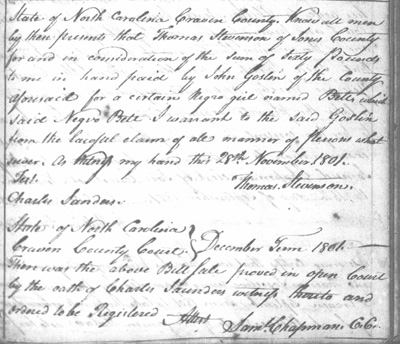 State of North Carolina Craven County. Know all men
by these presents that Thomas Stevenson of Jones County
for and in consideration of the Sum of Sixty Pounds
to me in hand paid by John Goslin of the County
aforesaid for a certain Negro girl named Bett, which
said Negro Bett I warrant to the said Goslin
from the lawful claim of all manner of persons what
soever. As witness my hand this 28th November 1801.
Test Thomas Stevenson.
Charles Sanders.
State of North Carolina
Craven County Court. } December Term 1801.
Then was the above Bill Sale proved in open Court
by the oath of Charles Saunders witness thereto and
ordered to be Registered Attest
Saml Chapman. C.C.